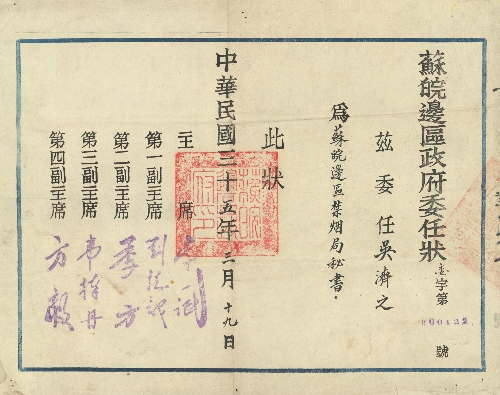 蘇皖邊區政府委任狀
字第
00422
號
茲委任吳濟之
爲蘇皖邊區禁烟局秘書.
此狀
中華民國三十五年三月十九日
主席
李一氓
第一副主席
劉瑞龍
第二副主席
季方
第三副主席
韋愨丹
第四副主席
方毅